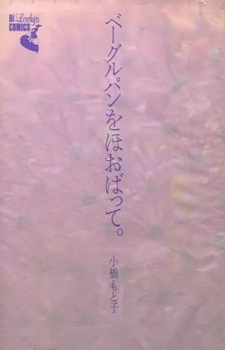 Hi Lady's
COMICS
ベーグルパンをほおばって。
小橋もと子